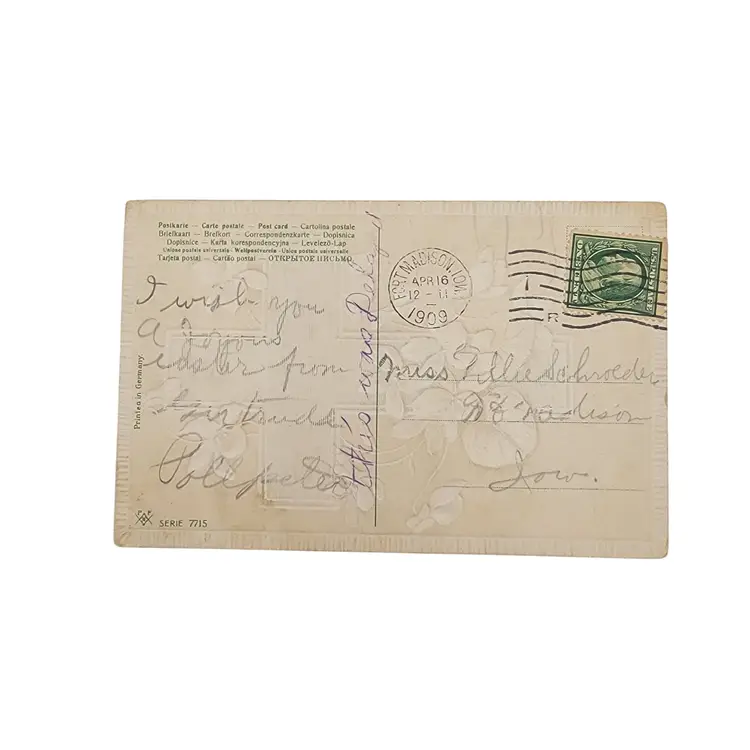 Postkarte — Carte postale — Post card — Cartolina postale
Briefkaart — Brefkort — Correspondenzkarte — Dopisnica
Dopisnice — Karta korespondencyjna — Levelező-Lap
Union postale universelle — Weltpostverein — Union postale universelle
Tarjeta postal — Cartão postal — ОТКРЫТОЕ ПИСЬМО
I wish you
A Joyous
easter from
Gertrude
Pollpeter
this was
Printed in Germany
SERIE 7715
FORT MADISON, IOWA
APR 16
12 - M
1909
R
U.S. POSTAGE
Miss Tillie Schroeder
Ft Madison
Iow.